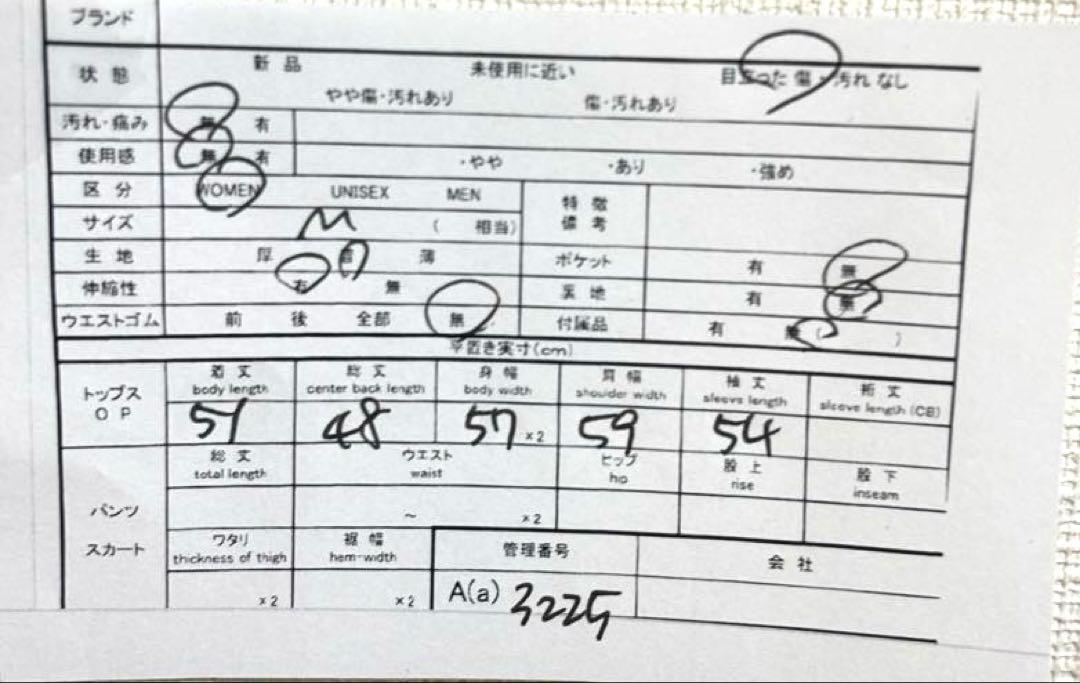 ブランド
状態 新品 未使用に近い 目立った傷・汚れなし
やや傷・汚れあり 傷・汚れあり
汚れ・痛み 無 有
使用感 無 有 ・やや ・あり ・強め
区分 WOMEN UNISEX MEN 特徴
サイズ M ( 相当) 備考
生地 厚 普 薄 ポケット 有 無
伸縮性 有 無 裏地 有 無
ウエストゴム 前 後 全部 無 付属品 有 無 ( )
平置き実寸(cm)
トップス 着丈 総丈 身幅 肩幅 袖丈 裄丈
O P body length center back length body width shoulder width sleeve length sleeve length (CB)
51 48 57 x2 59 54
総丈 ウエスト ヒップ 股上 股下
total length waist hip rise inseam
パンツ ~ x2
スカート ワタリ 裾幅 管理番号 会社
thickness of thigh hem-width
x2 x2 A(a) 3225